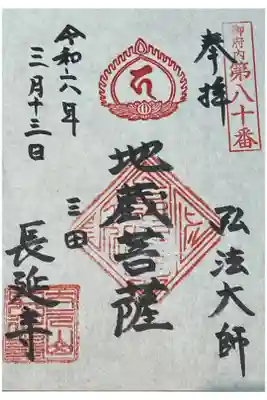 御府内
第八十番
奉拝
弘法大師
地蔵菩薩
三田
長延寺
令和六年
三月十三日